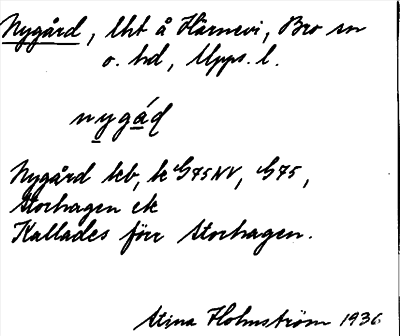 Nygård, lht å Härnevi, Bro sn
o. hd, Upps. l.
nygád
Nygård leb, le G75NV, G75,
Storhagen ek
Kallades förr Storhagen.
Stina Holmström 1936